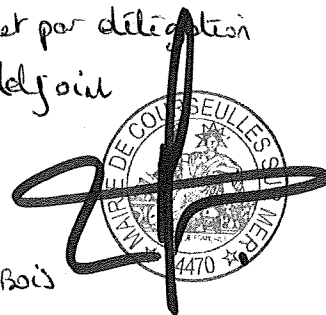 et par délégation
adjoint
MAIRIE DE COURSEULLES SUR MER
4470
BOIS